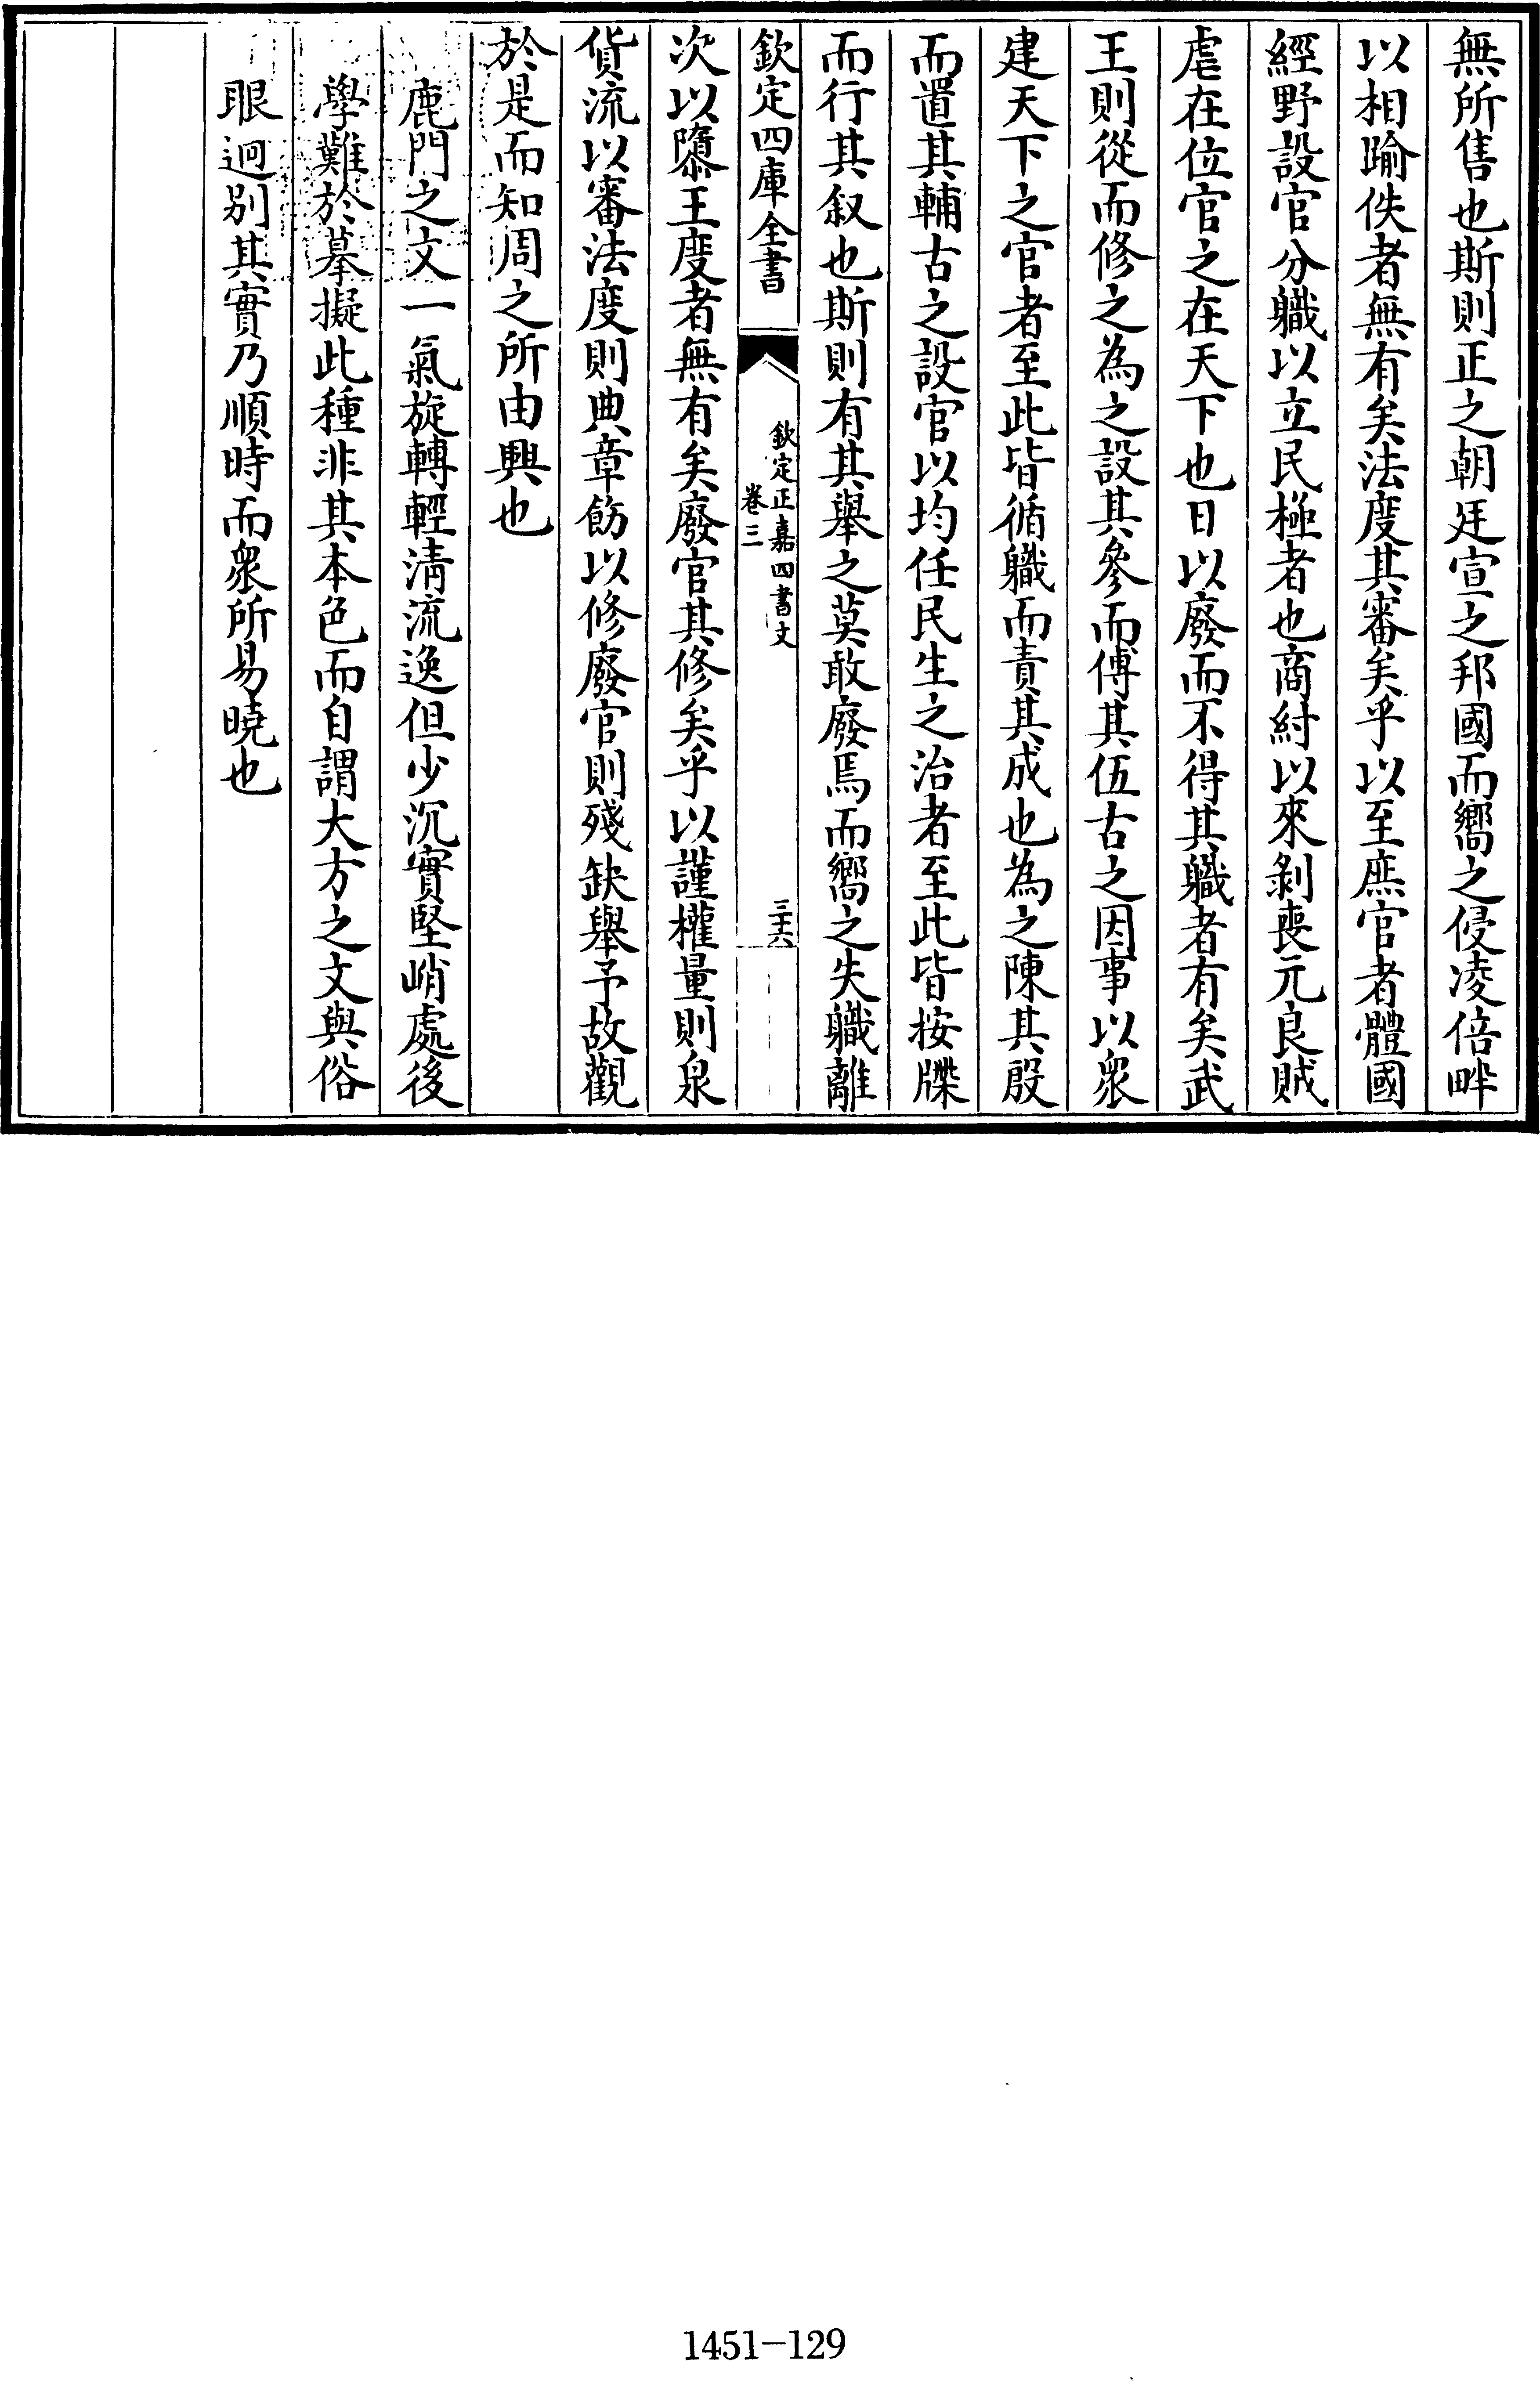 無所售也斯則正之朝廷宣之邦國而嚮之侵凌倍畔
以相踰佚者無有矣法度其審矣乎以至庶官者體國
經野設官分職以立民極者也商紂以來剝喪元良賊
虐在位官之在天下也日以廢而不得其職者有矣武
王則從而修之為之設其參而傅其伍古之因事以衆
建天下之官者至此皆循職而責其成也為之陳其殷
而置其輔古之設官以均任民生之治者至此皆按牒
而行其叙也斯則有其舉之莫敢廢焉而嚮之失職離
欽定四庫全書
欽定正嘉四書文
卷三
三六
次以隳王度者無有矣廢官其修矣乎以謹權量則泉
貨流以審法度則典章飭以修廢官則殘缺舉予故觀
於是而知周之所由興也
鹿門之文一氣旋轉輕清流逸但少沉實堅峭處後
學難於摹擬此種非其本色而自謂大方之文與俗
眼迥别其實乃順時而衆所易曉也
1451-129